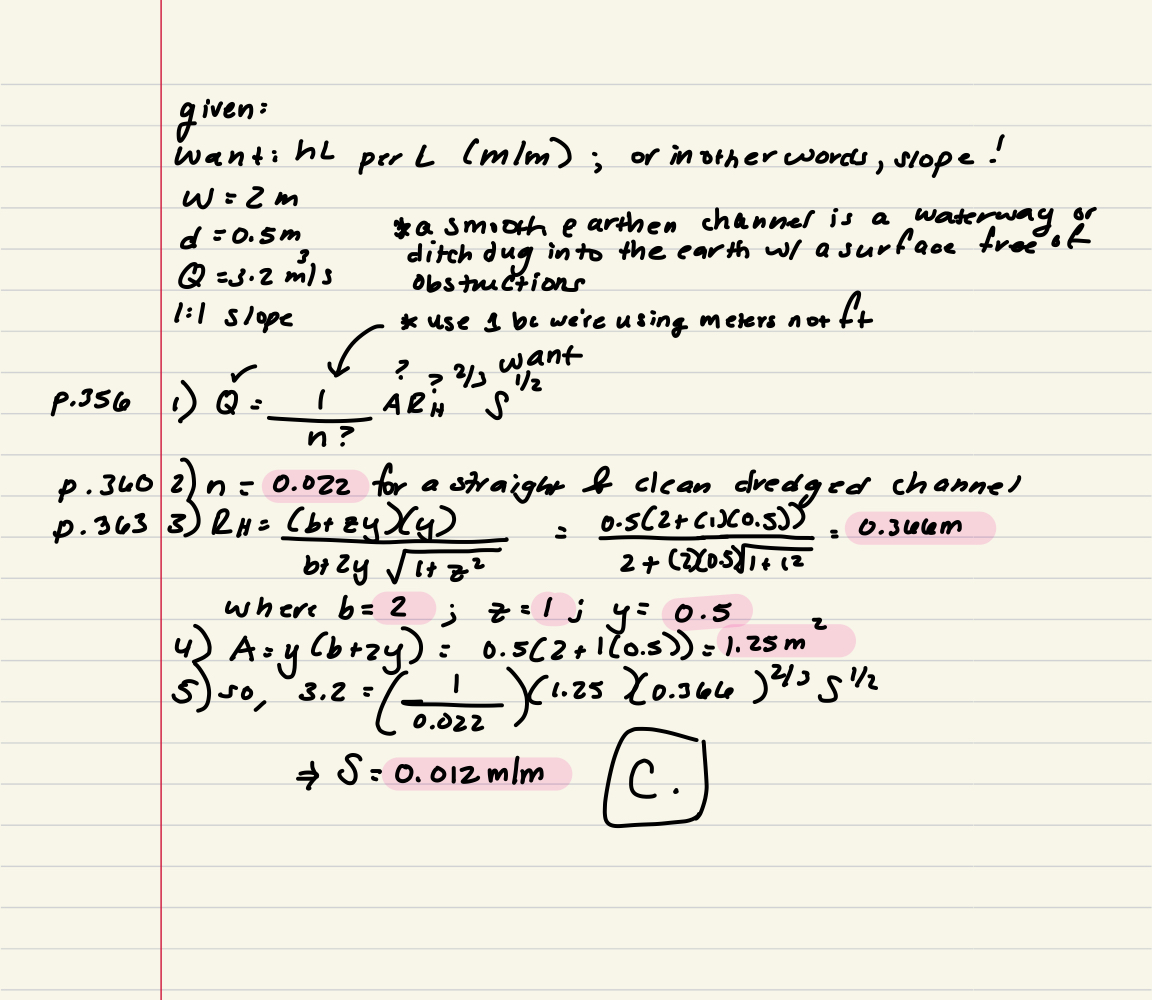 given:
want: hL per L (m/m) ; or in other words, slope!
w = 2 m
d = 0.5 m
Q = 3.2 m³/s
1:1 slope
* a smooth earthen channel is a waterway or
ditch dug into the earth w/ a surface free of
obstructions
* use 1 bc we're using meters not ft
p.356 1) Q ✓ = 1 / n? A? R_H?^2/3 S^1/2 want
p.360 2) n = 0.022 for a straight & clean dredged channel
p.363 3) R_H = (b+zy)(y) / b+2y √1+z² = 0.5(2+(1)(0.5)) / 2+(2)(0.5)√1+1² = 0.366m
where b = 2 ; z = 1 ; y = 0.5
4) A = y(b+zy) = 0.5(2+1(0.5)) = 1.25 m²
5) so, 3.2 = (1 / 0.022)(1.25)(0.366)^2/3 S^1/2
⇒ S = 0.012 m/m C.